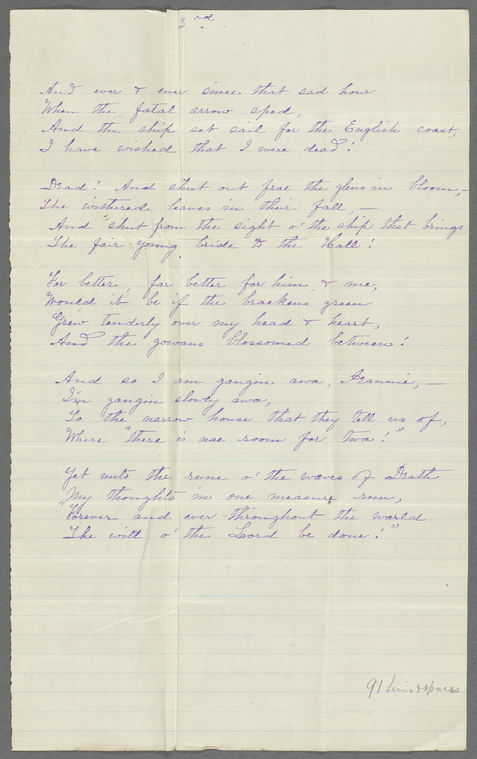 3rd
And ever & ever since that sad hour
When the fatal arrow sped,
And the ship set sail for the English coast,
I have wished that I were dead!
Dead! And shut out frae the glens in bloom, –
The withered leaves in their fall, –
And shut from the sight o' the ship that brings
The fair young bride to the Hall!
Far better, far better for him, & me,
Would it be if the brackens green
Grew tenderly over my head & heart,
And the gowans blossomed between!
And so I am gangin awa, Jeannie, –
I'm gangin slowly awa,
To the narrow house that they tell us of,
Where "there is nae room for twa!"
Yet unto the rune o' the waves of Death
My thoughts in one measure run,
"Forever and ever throughout the world
The will o' the Lord be done!"
91 lines &